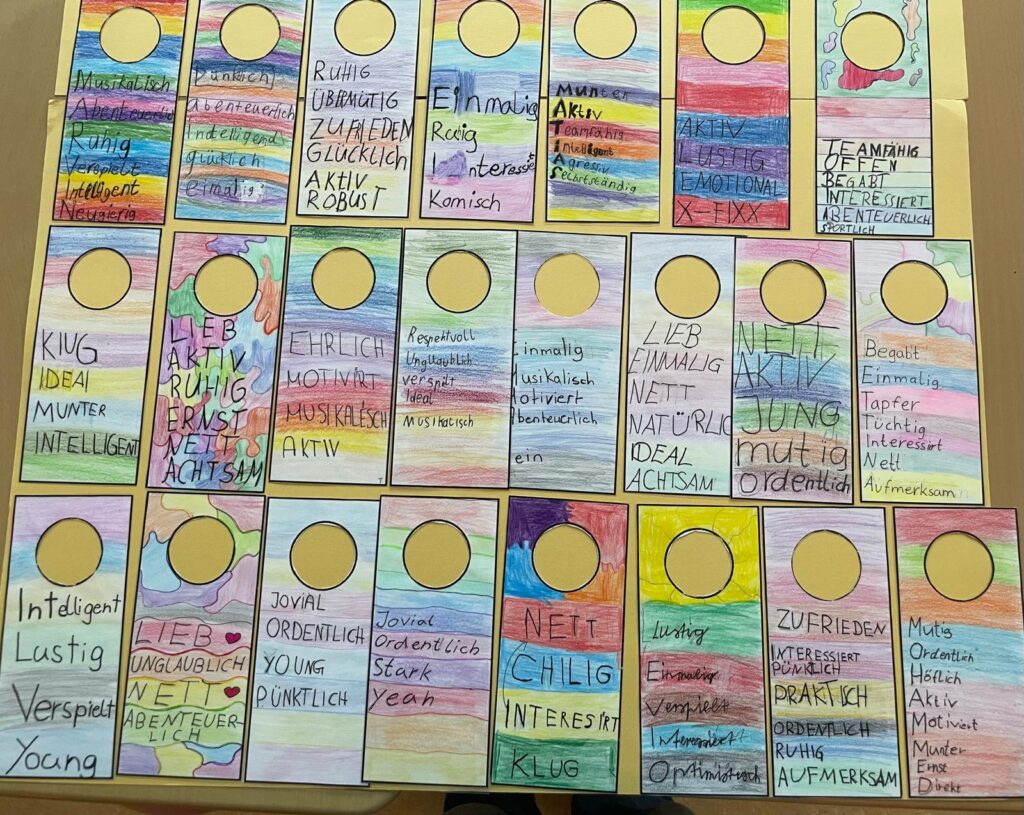 Musikalisch
Abenteuerlich
Ruhig
Verspielt
Intelligent
Neugierig
Pünklich
abenteuerlich
Intelligend
glücklich
eimalig
RUHIG
ÜBERMÜTIG
ZUFRIEDEN
GLÜCKLICH
AKTIV
ROBUST
Einmalig
Ruig
Interessiert
Komisch
Munter
Aktiv
Teamfähig
Intelligent
Agressiv
Selbstständig
AKTIV
LUSTIG
EMOTIONAL
X-FIXX
TEAMFÄHIG
OFFEN
BEGABT
INTERESSIERT
ABENTEUERLICH
SPORTLICH
KlUG
IDEAl
MUNTER
INTELLIGENT
LIEB
AKTIV
RUHIG
ERNST
NETT
ACHTSAM
EHRLICH
MOTIVIRT
MUSIKALESCH
AKTIV
Respektvoll
Unglaublich
verspilt
Ideal
Musikalisch
Einmalig
Musikalisch
Motiviert
Abenteuerlich
ein
LIEB
EINMALIG
NETT
NATÜRLIC
IDEAL
ACHTSAM
NETT
AKTIV
JUNG
mutig
Ordentlich
Begabt
Einmalig
Tapfer
Tüchtig
Interessirt
Nett
Aufmerksam
Intelligent
Lustig
Verspielt
Young
LIEB
UNGLAUBLICH
NETT
ABENTEUER
LICH
JOVIAL
ORDENTLICH
YOUNG
PÜNKTLICH
Jovial
Ordentlich
Stark
Yeah
NETT
CHILIG
INTERESIRT
KLUG
Lustig
Einmalig
Verspielt
Interessiert
Optimistisch
ZUFRIEDEN
INTERESSIERT
PÜNKLICH
PRAKTISCH
ORDENTLICH
RUHIG
AUFMERKSAM
Mutig
Ordentlich
Höflich
Aktiv
Motiviert
Munter
Ernst
Direkt